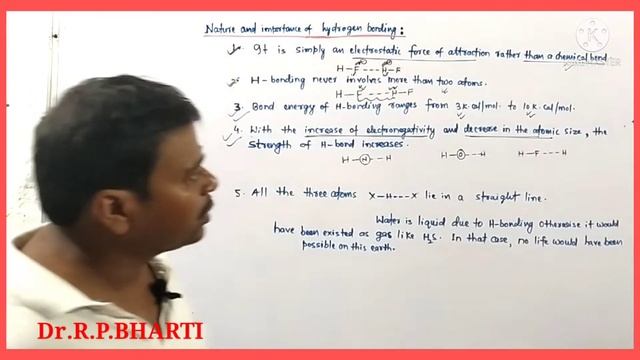 Nature and importance of hydrogen bonding:
1. It is simply an electrostatic force of attraction rather than a chemical bond.
H-F---H-F
2. H-bonding never involves more than two atoms.
H-F---H-F
3. Bond energy of H-bonding ranges from 3 K.cal/mol. to 10 K.cal/mol.
4. With the increase of electronegativity and decrease in the atomic size, the
strength of H-bond increases.
H-N---H H-O---H H-F---H
5. All the three atoms X-H---X lie in a straight line.
Water is liquid due to H-bonding otherwise it would
have been existed as gas like H2S. In that case, no life would have been
possible on this earth.
Dr.R.P.BHARTI